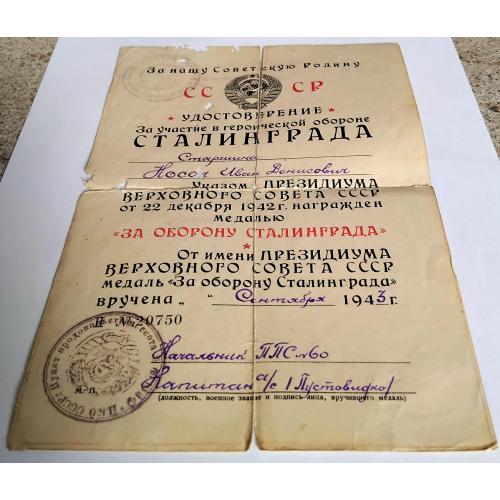 За нашу Советскую Родину
СССР
УДОСТОВЕРЕНИЕ
За участие в героической обороне
СТАЛИНГРАДА
Старшина
Носач Иван Денисович
Указом ПРЕЗИДИУМА
ВЕРХОВНОГО СОВЕТА СССР
от 22 декабря 1942 г. награжден
медалью
«ЗА ОБОРОНУ СТАЛИНГРАДА»
От имени ПРЕЗИДИУМА
ВЕРХОВНОГО СОВЕТА СССР
медаль «За оборону Сталинграда»
вручена „ “ Сентября 1943 г.
П № 20750
Начальник ППС №60
М. П. Капитан а/с /Пустовидко/
(должность, военное звание и подпись лица, вручившего медаль)
НКО СССР